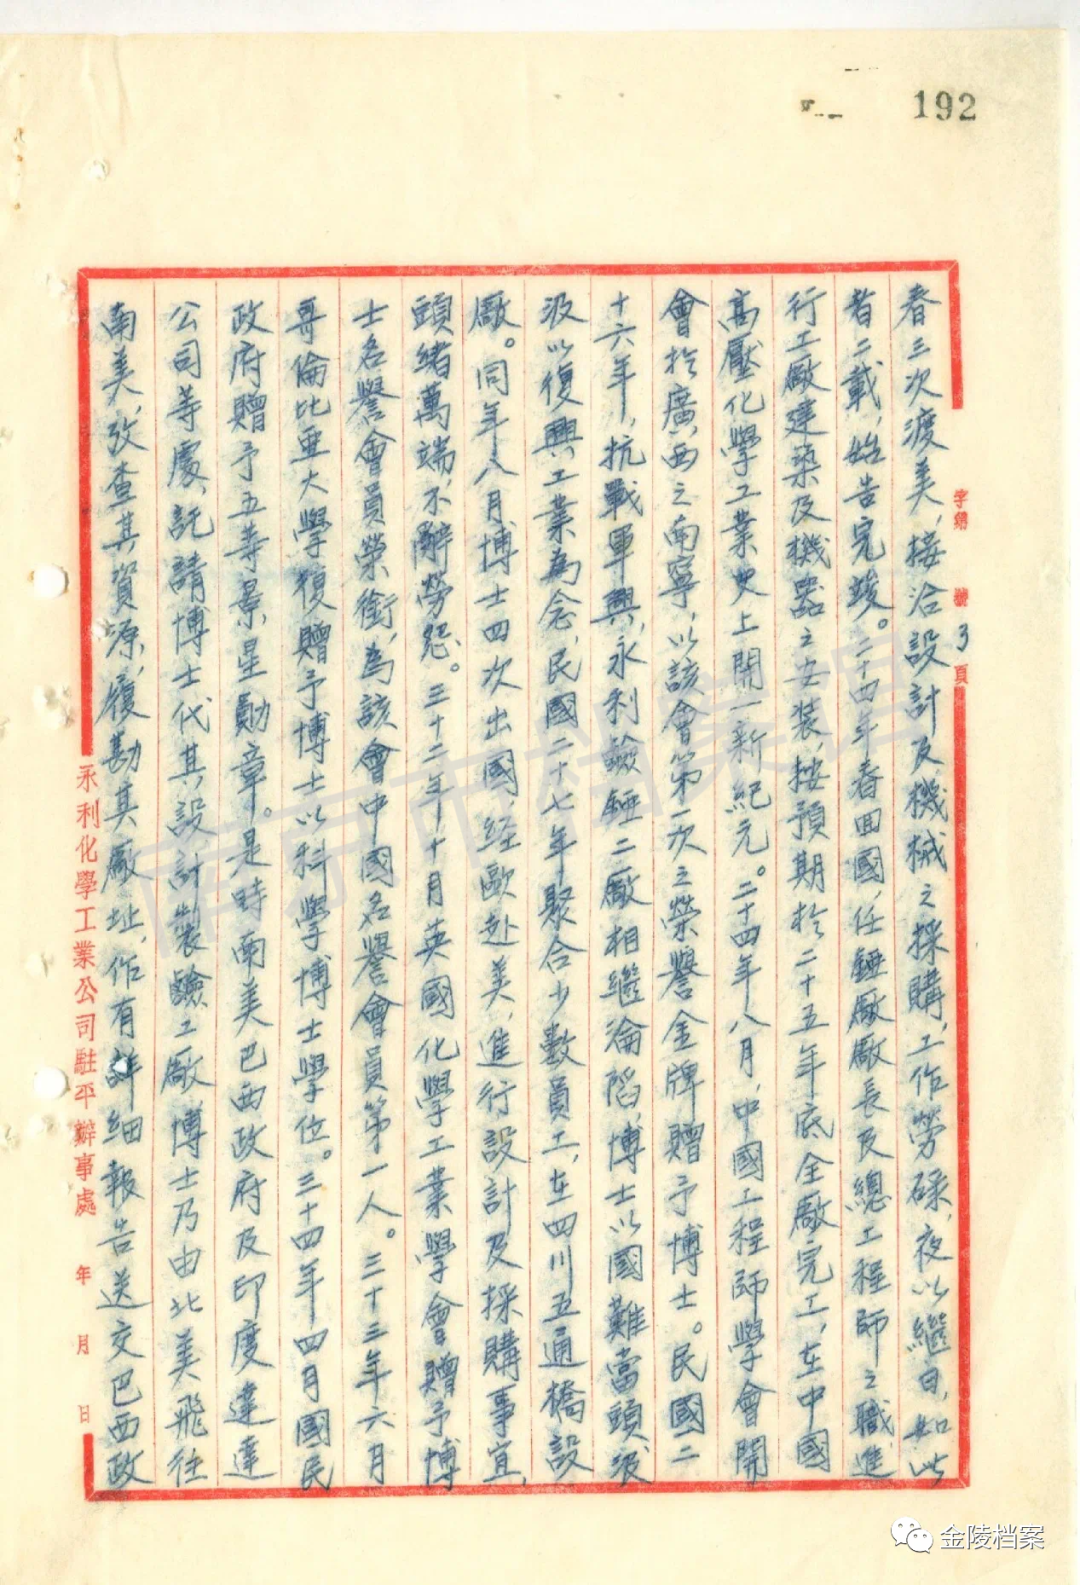 192
字第 號 3 頁
春三次渡美，接洽設計及機械之採購，工作勞碌，夜以繼日，如此
者二載，始告完竣。二十四年春回國，任錏廠廠長及總工程師之職，進
行工廠建築及機器之安裝，按預期於二十五年底全廠完工，在中國
高壓化學工業史上開一新紀元。二十四年八月，中國工程師學會開
會於廣西之南寧，以該會第一次之榮譽金牌贈予博士。民國二
十六年，抗戰軍興，永利鹼錏二廠相繼淪陷，博士以國難當頭，汲
汲以復興工業為念，民國二十七年聚合少數員工，在四川五通橋設
廠。同年八月博士四次出國，经歐赴美，進行設計及採購事宜，
頭緒萬端，不辭勞怨。三十二年十月英國化學工業學會贈予博
士名譽會員榮銜，為該會中國名譽會員第一人。三十三年六月
哥倫比亜大學復贈予博士以科學博士學位。三十四年四月國民
政府贈予五等景星勛章。是時南美巴西政府及印度達達
公司等處，託請博士代其設計製鹼工廠，博士乃由北美飛往
南美，攷查其資源，履勘其廠址，作有詳細報告送交巴西政
永利化學工業公司駐平辦事處 年 月 日
南京市档案馆
金陵档案